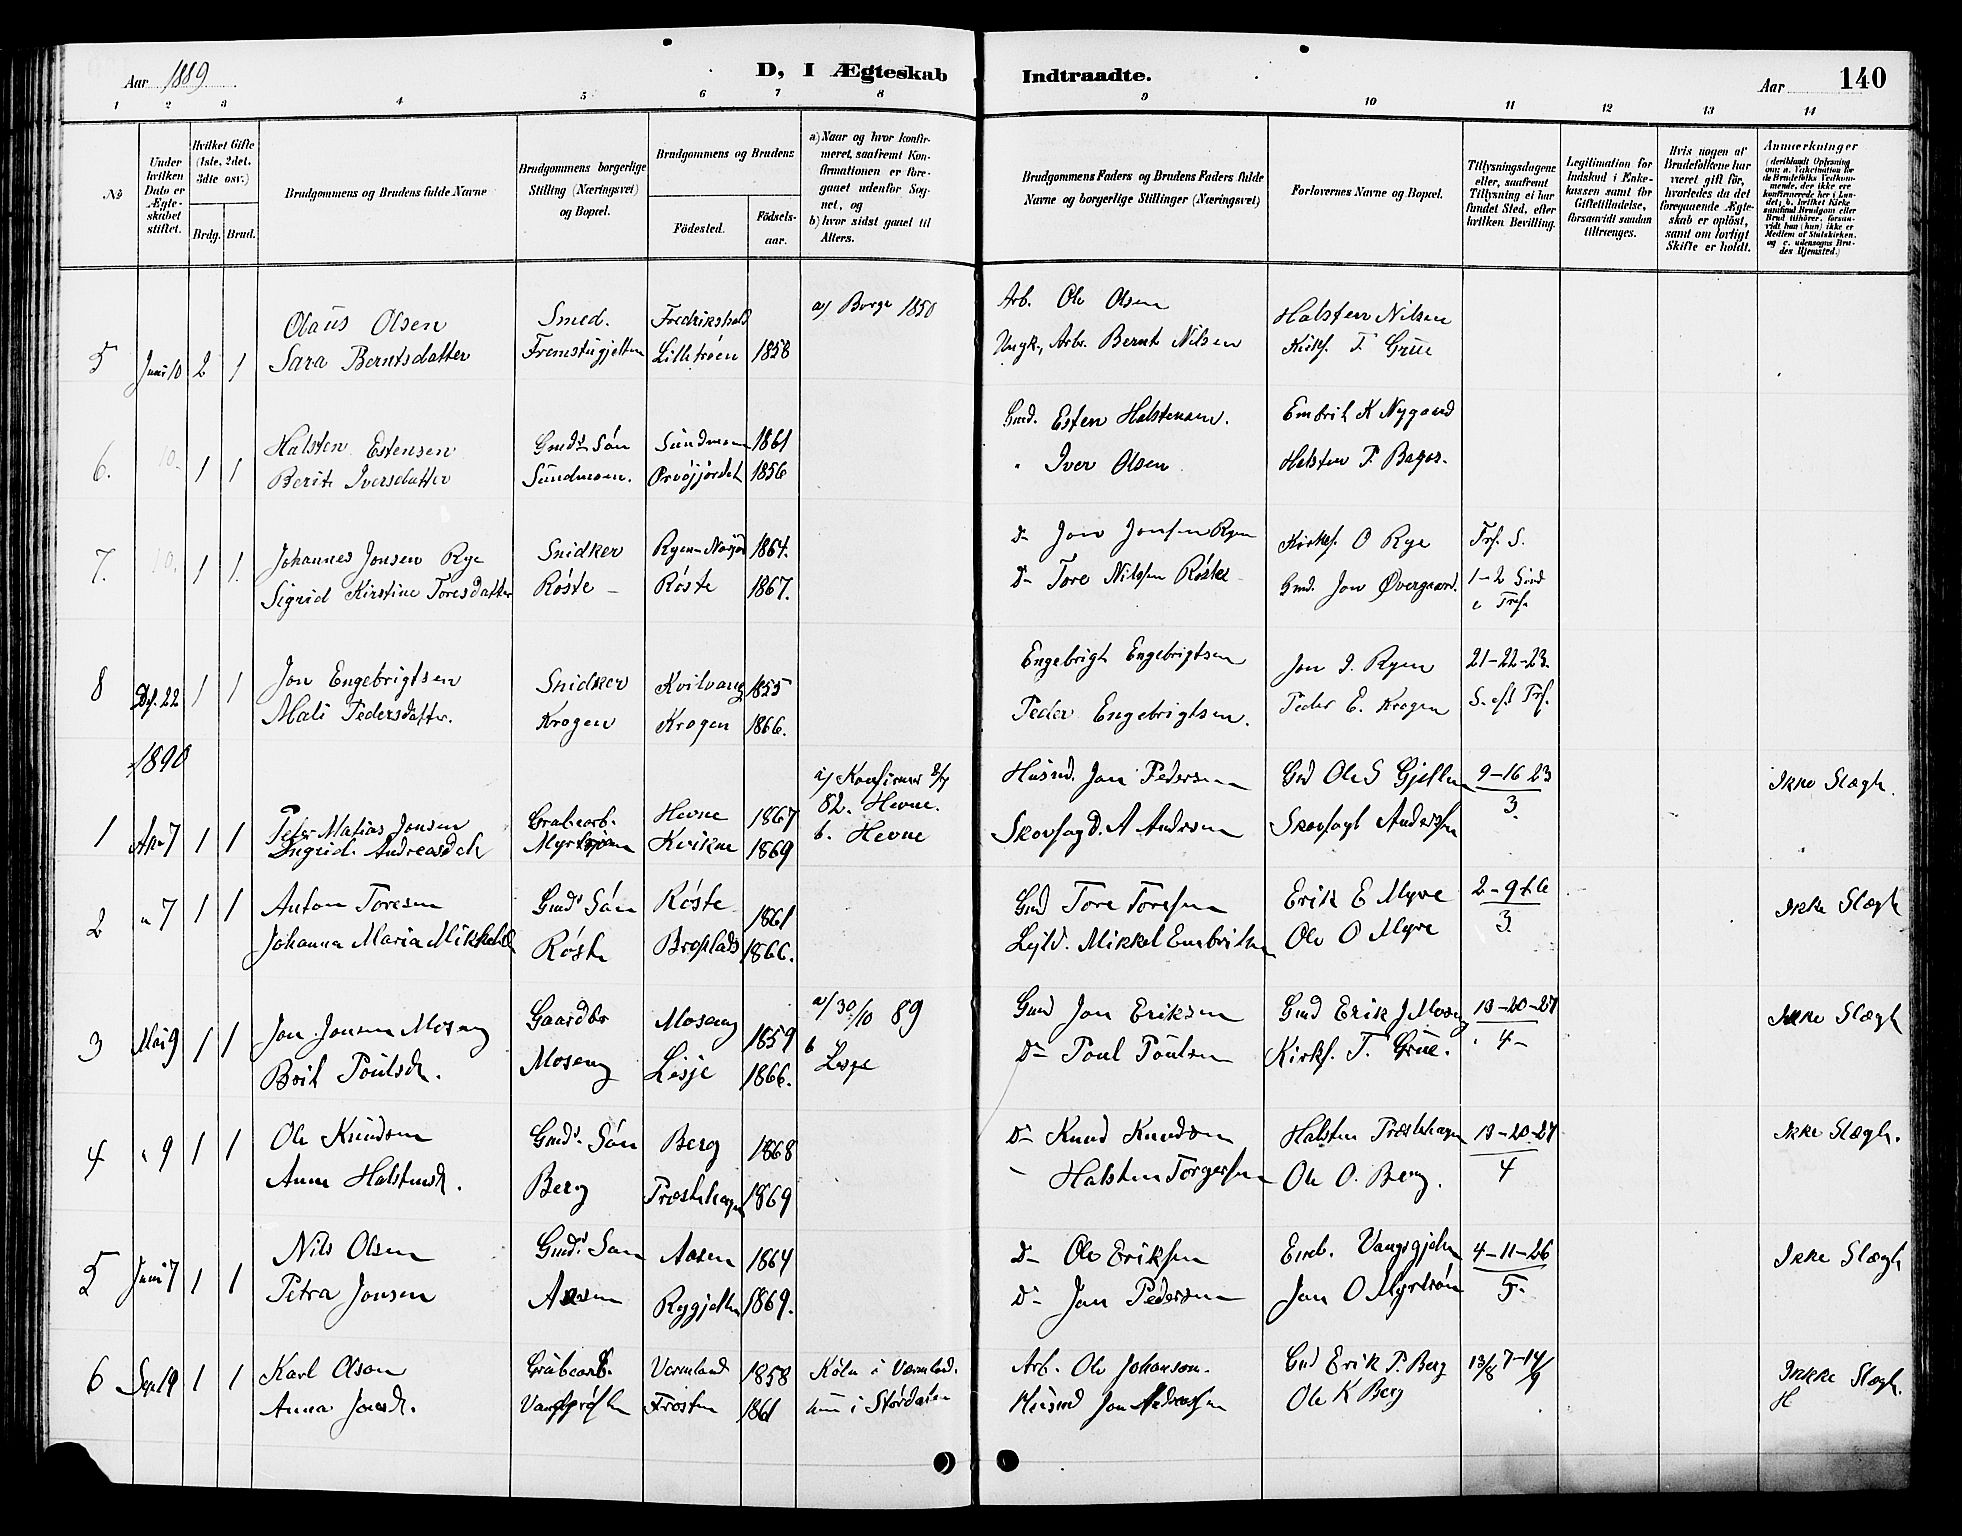 Aar 1889
D, I Ægteskab Indtraadte.
Aar 140
1 2 3 4 5 6 7 8 9 10 11 12 13 14
No
Under hvilken Dato er Ægteskabet stiftet.
Hvilket Gifte (1ste, 2det, 3die osv.)
Brdg. Brud.
Brudgommens og Brudens fulde Navne
Brudgommens borgerlige Stilling (Næringsvei) og Bopæl.
Brudgommens og Brudens
Fødested.
Fødsels-aar.
a) Naar og hvor konfirmeret, saafremt Konfirmationen er foregaaet udenfor Sognet, og
b) hvor sidst gaaet til Alters.
Brudgommens Faders og Brudens Faders fulde Navne og borgerlige Stillinger (Næringsvei)
Forlovernes Navne og Bopæl.
Tillysningsdagene eller, saafremt Tillysning ei har fundet Sted, efter hvilken Bevilling.
Legitimation for Indskud i Enkekassen samt for Giftetilladelse, forsaavidt saadan tiltrænges.
Hvis nogen af Brudefolkene har været gift før, hvorledes da det foregaaende Ægteskab er opløst, samt om lovligt Skifte er holdt.
Anmærkninger
5 Juni 10 2 1 Olaus Olsen Smed. Fredrikshald a) Borge 1850 Arb. Ole Olsen Halsten Nilsen
Sara Berntsdatter Fremstugjelten Lilletrøen 1858 Ungk., Arb. Bernt Nilsen Kirks. T. Grue
6. 10. 1 1 Halsten Estensen Gmds Søn Sundmoen 1861 Gmd. Esten Halstensen. Embrik K Nygaard
Berit Iversdatter Sundmoen. 1856 " Iver Olsen Halsten P.
7. 10. 1 1. Johannes Jonsen Rye Snidker Ryen 1864. D- Jon Jonsen Ryen Kirks. O Rye Trf. S.
Sigrid Kirstine Toresdatter Røste - Røste 1867. D- Tore Nilssen Røste Gmd. Jon Øvergaard. 1-2
8 22 1 1 Jon Engebrigtsen Snidker Kvilvang 1855 Engebrigt Engebrigtsen Jon J. Ryen 21-22-23.
Mali Pedersdatter. Krogen Krogen 1866. Peder Engebrigtsen. Peder E. Krogen S. Trf.
1890
1 Apr 7 1 1 Peter Matias Jonsen Grubearb. Hevne 1867 82. Hevne. Husmd. Jon Pedersen Gmd Ole S Gjelten 9-16 23 Ikke Slægt.
Ingrid Andreasd Kvikne 1869 b. Hevne A Andersen Andersen 3.
2 " 7 1 1 Anton Toresen Gmds Søn Røste 1861 Gmd Tore Toresen Erik E Myre 2-9 Ikke Slægt
Johanna Maria Røste 1866. Mikkel Embriksen Ole O Myre 3.
3 Mai 9 1 1 Jon Jonsen Moseng Gaardbr Moseng 1859 a/ 30/10 89 Gmd Jon Eriksen Gmd Erik J Moseng 13-20-27 Ikke Slægt
Brit Poulsd. Moseng Lesje 1866. b Lesje D- Poul Poulsen Kirks. T. Grue. 4-
4 " 9 1 1 Ole Knudsen Gmds Søn Berg 1868 D- Knud Knudsen Halsten Præstehagen 13-20-27 Ikke Slægt.
Anne Halstensd. Berg Præstehagen 1869 - Halsten Torgersen Ole O. Berg. 4
5 Juni 7 1 1 Nils Olsen Gmds. Søn Aasen 1864 D- Ole Eriksen Emb. Vangsgjelten 4-11-26 Ikke Slægt
Petra Jonsen Aasen Rygjelten 1869. D- Jon Pedersen Jon O Myrtrøen 5.
6 Sept 19 1 1 Karl Olson Grubearb. Vermland 1858 Köln i Værmland. Arb. Ole Johanson. Gmd Erik P. Berg 13/8 7-14/9 Ikke Slægt.
Anna Jonsd. Frosten 1861 hun i Størdalen Husmd Jon Andersen Ole K Berg